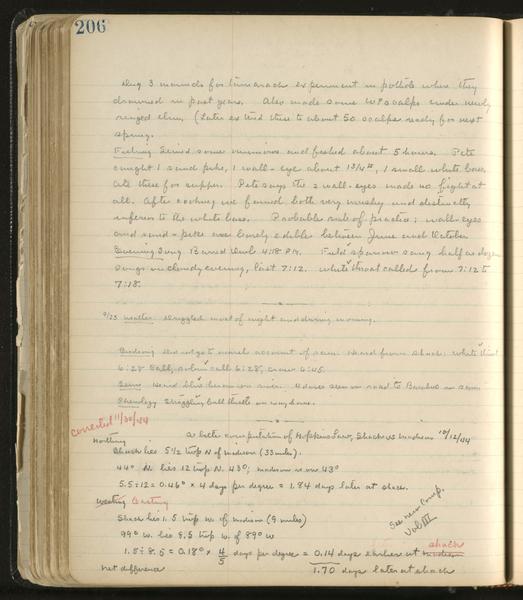 206
Dug 3 mounds for tamarack experiment in potholes where they
drowned in past years. Also made some WP scalps under newly
ringed elms (Later extend these to about 50 scalps ready for next
spring.
Fishing Seined some minnows and fished about 5 hours. Pete
caught 1 sand pike, 1 wall-eye about 1 3/4 lb, 1 small white bass.
Ate these for supper. Pete says the 2 wall-eyes made no fight at
all. After cooking we found both very mushy and distinctly
inferior to the white bass. Probable rule of practice: wall-eyes
and sand-pike are barely edible between June and October
Evening Song Barred Owl 4:18 PM. Field sparrow sang half a dozen
songs in cloudy evening, last 7:12. White throat called from 7:12 to
7:18.
9/23 Weather Drizzled most of night and during morning.
Birdsong Did not get to marsh account of rain. Heard from shack: white throat
6:25 call, robin call 6:28, crow 6:45.
Game Heard blue heron on river. 4 doves seen on road to Baraboo in rain
Phenology Straggling bull thistle on way home.
corrected 11/30/44
Northing A better computation of Hopkins Law, Shack vs Madison 10/12/44
Shack lies 5 1/2 twp N of Madison (33 miles).
44° N. lies 12 twp N. 43°; Madison is on 43°
5.5÷12 = 0.46° × 4 days per degree = 1.84 days later at shack.
Westing Easting
Shack lies 1.5 twp w. of Madison (9 miles)
90° w. lies 8.5 twp w. of 89° w
1.5÷8.5 = 0.18° × 4/5 days per degree = 0.14 days earlier at Madison shack
Net difference 1.70 days later at shack
See new Comp.
Vol III